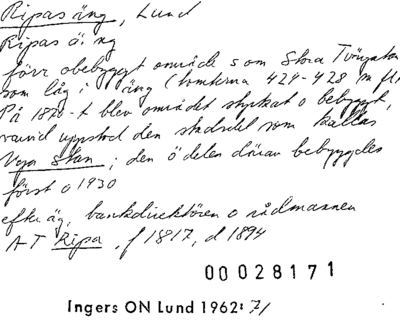 Ripas äng, Lund
Ripas äng
förr obebyggt område s om Stora Tvärgatan
som låg i äng (tomterna 424-428 m fl)
På 1870-t blev området styckat o bebyggt,
varvid uppstod den stadsdel som kallas
Nya Stan; den ö delen därav bebyggdes
först o 1930
efter äg, bankdirektören o rådmannen
A T Ripa, f 1817, d 1894
00028171
Ingers ON Lund 1962: 71